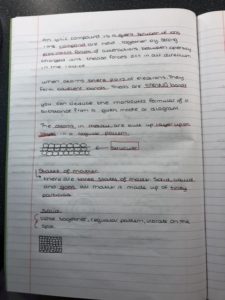 An ionic compound is a giant structure of ions
The compound are held together by strong
electrostatic forces of attractions between oppositely
charged ions. these forces act in all directions
in the lattice
When atoms share pairs of electrons they
form covalent bonds. These are strong bonds
you can deduce the molecular formula of a
substance from a given model or diagram
The atoms in metal are built up layer upon
layer in a regular pattern.
structure
States of matter
there are three states of matter. Solid, liquid
and gases. all matter is made up of tiny
particles
Solid
close together, regular pattern, vibrate on the
spot